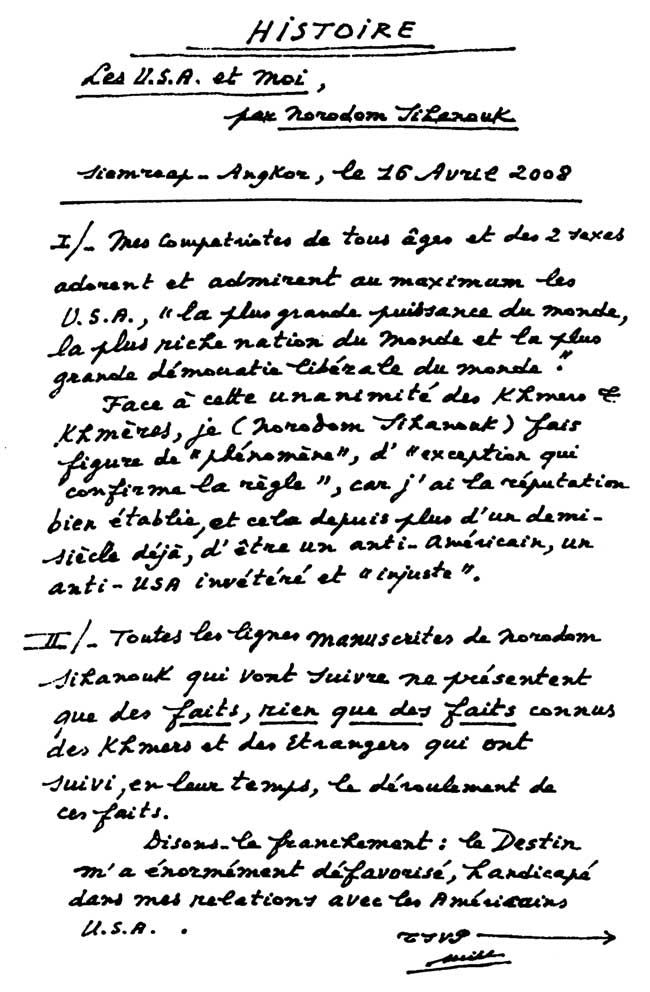 HISTOIRE
Les U.S.A. et Moi,
par Norodom Sihanouk
Siemreap - Angkor, le 16 Avril 2008
I/- Mes Compatriotes de tous âges et des 2 sexes
adorent et admirent au maximum les
U.S.A., "la plus grande puissance du monde,
la plus riche nation du Monde et la plus
grande démocratie libérale du monde".
Face à cette unanimité des Khmers &
Khmères, je (Norodom Sihanouk) fais
figure de "phénomène", d' "exception qui
confirme la règle", car j'ai la réputation
bien établie, et cela depuis plus d'un demi-
siècle déjà, d'être un anti-Américain, un
anti-USA invétéré et "injuste".
II/- Toutes les lignes manuscrites de Norodom
Sihanouk qui vont suivre ne présentent
que des faits, rien que des faits connus
des Khmers et des Etrangers qui ont
suivi, en leur temps, le déroulement de
ces faits.
Disons-le franchement : le Destin
m'a énormément défavorisé, handicapé
dans mes relations avec les Américains
U.S.A. .
TSVP